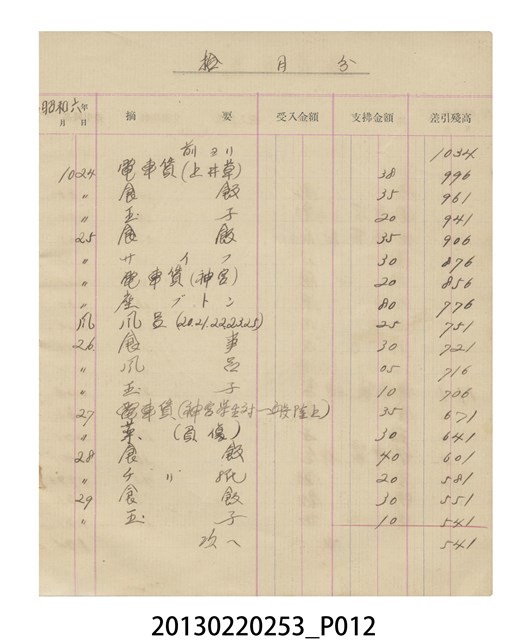 拾月分
昭和六年 月 日 摘要 受入金額 支拂金額 差引殘高
前ヨリ 1034
10 24 電車賃(上井草) 38 996
〃 食飯 35 961
〃 玉子 20 941
25 食飯 35 906
〃 サイフ 30 876
〃 電車賃(神宮) 20 856
〃 座ブトン 80 776
風呂(20.21.22.23.25) 25 751
26 食事 30 721
〃 風呂 05 716
〃 玉子 10 706
27 電車賃(神宮学生対一般陸上) 35 671
〃 薬(負傷) 30 641
28 食飯 40 601
〃 チリ紙 20 581
29 食飯 30 551
〃 玉子 10 541
次へ 541
20130220253_P012